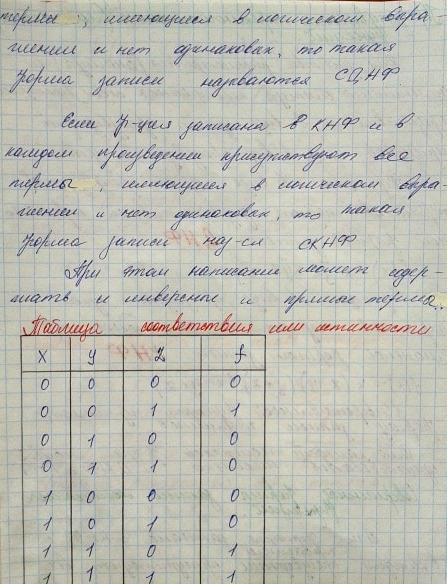 термы, имеющиеся в логическом выра-
жении и нет одинаковых, то такая
форма записи называются СДНФ
Если ф-ция записана в КНФ и в
каждом произведении присутствуют все
термы, имеющиеся в логическом выра-
жении и нет одинаковых, то такая
форма записи наз-ся СКНФ
При этом написание может содер-
жать и инверсные и прямые термы..
Таблица соответствия или истинности
X y Z f
0 0 0 0
0 0 1 1
0 1 0 0
0 1 1 0
1 0 0 0
1 0 1 0
1 1 0 1
1 1 1 1